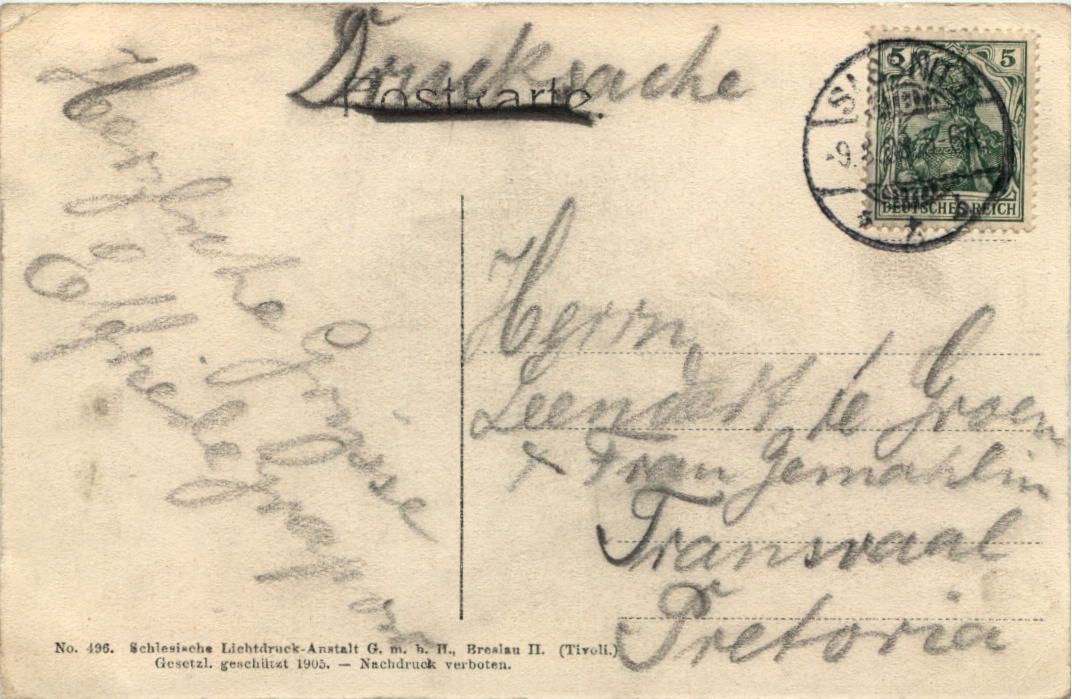 Drucksache
Postkarte
5 5
DEUTSCHES REICH
Herzliche Grüsse
Herrn
Leendert de Groen
+ Frau Gemahlin
Transvaal
Pretoria
No. 496. Schlesische Lichtdruck-Anstalt G. m. b. H., Breslau II. (Tivoli.)
Gesetzl. geschützt 1905. — Nachdruck verboten.